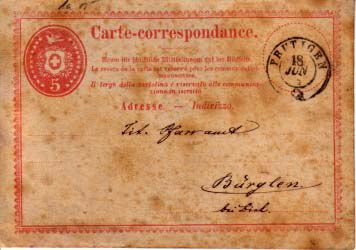 Carte-correspondance.
Raum für schriftliche Mittheilungen auf der Rückseite.
Le revers de la carte est réservé pour les communications
manuscrites.
Il tergo della cartolina è riservato alle communica-
zioni in iscritto
5
FRUTIGEN
18
JUN
Adresse. — Indirizzo.
Tit. Pfarramt
Bürglen
bei Biel.